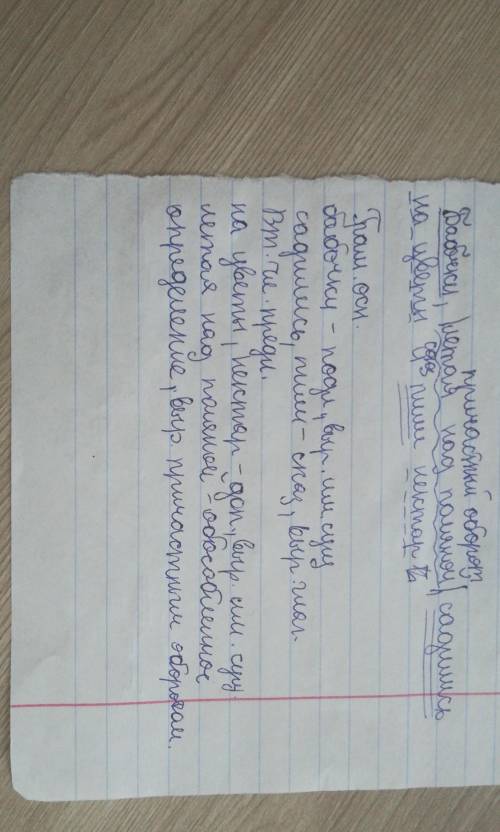 причастный оборот
Бабочки, летая над поляной, садились
на цветы пили нектар
Грам. осн.
бабочки - подл., выр. им. сущ
садились, пили - сказ, выр. глаг.
Вт. чл. предл.
на цветы, нектар - доп., выр. им. сущ.
летая над поляной - обособленное
определение, выр. причастным оборотом.